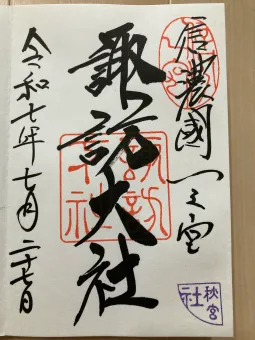 信濃國一之宮
諏訪大社
令和七年七月二十七日
諏訪大社
秋宮
社